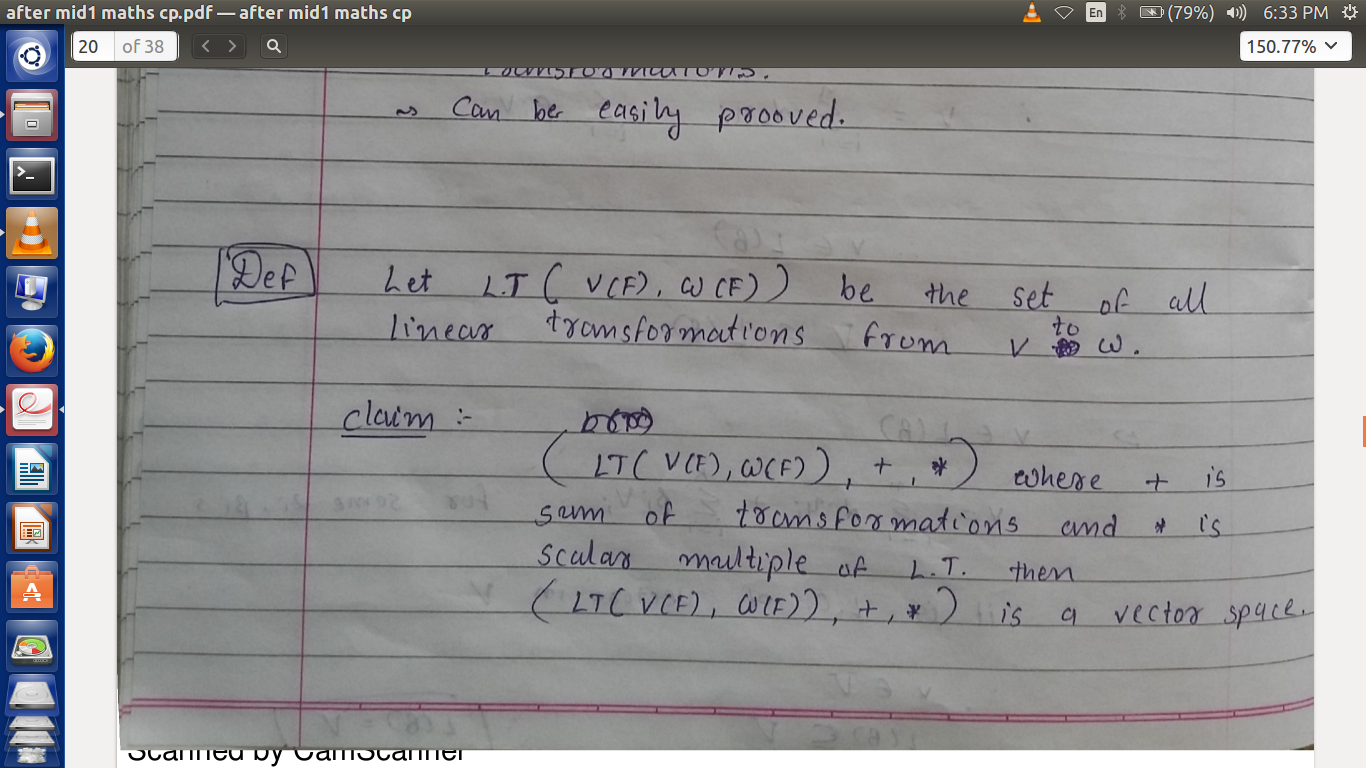 after mid1 maths cp.pdf — after mid1 maths cp
En (79%) 6:33 PM
20 of 38 150.77%
transformations.
~> Can be easily prooved.
Def Let L.T ( V(F), W(F) ) be the set of all
linear transformations from V to W.
Claim :-
( LT( V(F), W(F) ), + , * ) where + is
sum of transformations and * is
scalar multiple of L.T. then
( LT( V(F), W(F)), +, * ) is a vector space.
Scanned by CamScanner